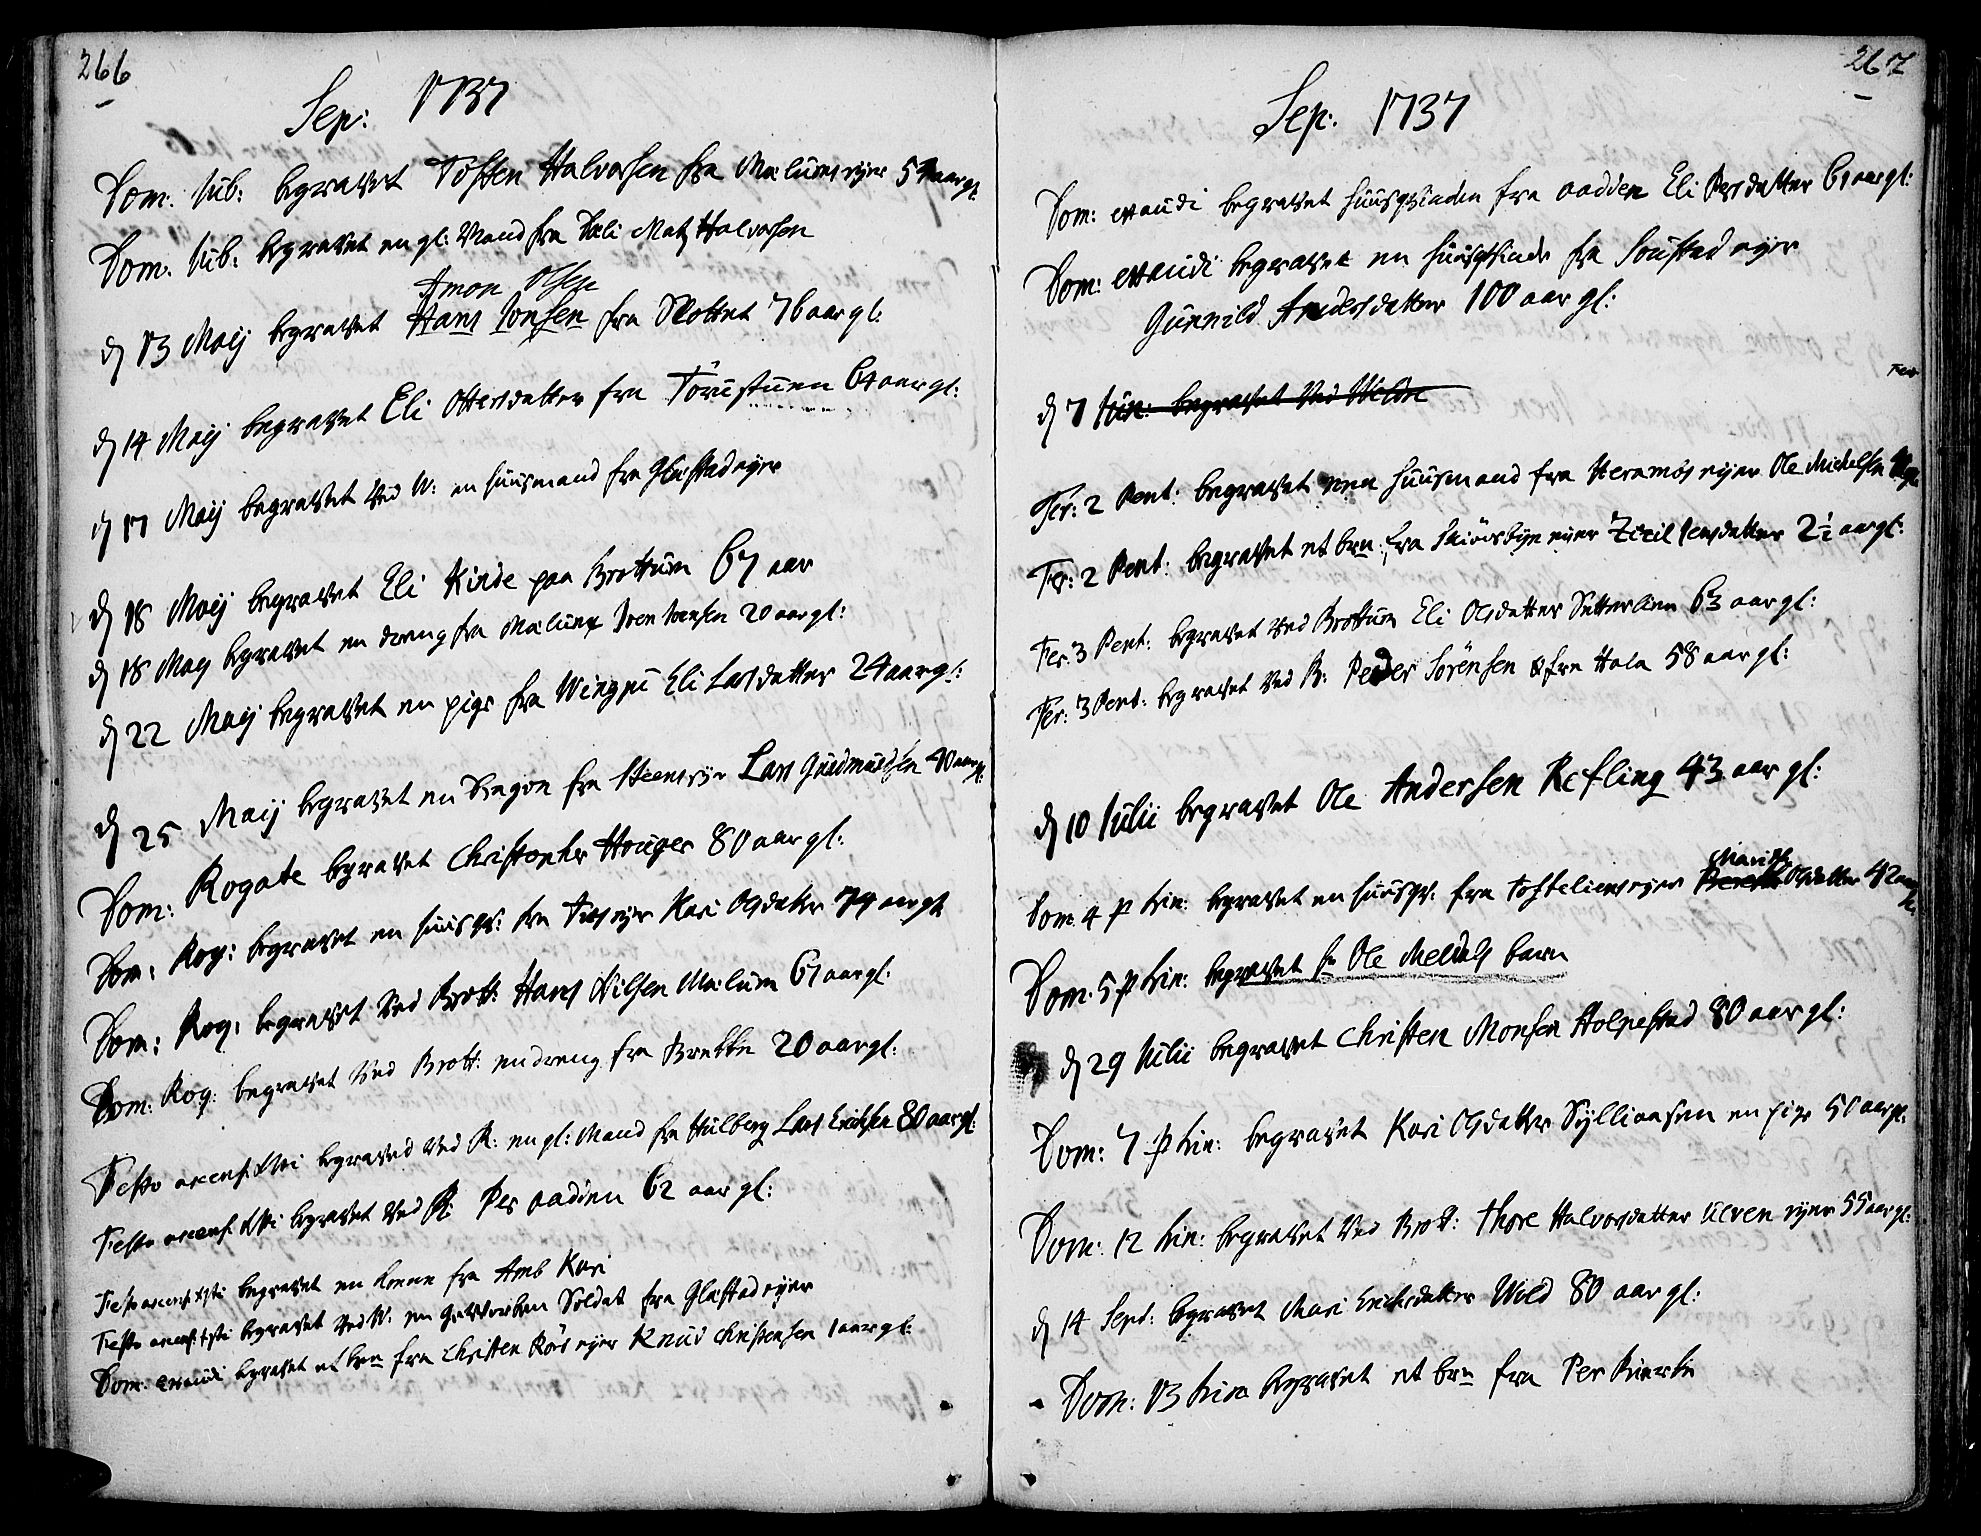 266
Sep: 1737
Dom: Jub: begravet Tosten Halvorsen fra Mælumseyer 59 aar gl.
Dom: Jub: begravet en gl: Mand fra Dæli Matz Halvorsen
Amon Olsen
d 13 Maij begravet Hans Jonsen fra Slottet 76 aar gl:
d 14 Maij begravet Eli Ottersdatter fra Torustuen 64 aar gl:
d 17 Maij begravet Ved V: en huusmand fra Glæstad eyer
d 18 Maij begravet Eli Kinde paa Brottum 67 aar
d 18 Maij begravet en dreng fra Mælum Iven Ivensen 20 aar gl:
d 22 Maij begravet en pige fra Wingru Eli Larsdatter 24 aar gl:
d 25 Maij begravet en fra Steens eyr Lars Gudmundsen 40 aar gl:
Dom: Rogate begravet Christopher Houger 80 aar gl:
Dom: Rog: begravet en huusqv: fra eyer Kari Olsdatter 74 aar gl
Dom: Rog: begravet Ved Brott: Hans Nilsen Mælum 61 aar gl:
Dom: Rog: begravet Ved Brott: en dreng fra Brekke 20 aar gl:
Festo ascens. Xsti begraved Ved R: en gl: Mand fra Hulberg Lars Erichsen 80 aar gl:
Festo ascens. Xsti begravet Ved R: Per aadden 62 aar gl:
Festo ascens. Xsti begravet en kone fra Amb Kari
Festo ascens. Xsti begravet Ved V: en Geworben Soldat fra Glæstad eyer
Dom: exaudi begravet et brn fra Christen Rös eyer Knud Christensen 1 aar gl:
267
Sep: 1737
Dom: exaudi begravet huusqvinden fra aadden Eli Persdatter 61 aar gl:
Dom: exaudi begravet en huusqvinde fra Soustad eyer
Gunnild Andersdatter 100 aar gl:
d 7 Jun: begravet Ved
Fer: 2 Pent: begravet een huusmand fra Heramös eyer Ole Michelsen
Fer: 2 Pent: begravet et brn: fra Skiörsbye eyer Zizil Jensdatter 2½ aar gl:
Fer: 3 Pent: begravet Ved Brottum Eli Olsdatter Setterlien 63 aar gl:
Fer: 3 Pent: begravet Ved B: Peder Sörensen fra Hala 58 aar gl:
d 10 Julii begravet Ole Andersen Refling 43 aar gl:
Marith
Dom: 4 p trin: begravet en huusqv: fra Tostelienseyer Olsdatter 42 aar gl:
Dom: 5 p trin: begravet Ole Meldals barn
d 29 Julii begravet Christen Monsen Holpestad 80 aar gl:
Dom: 7 p trin: begravet Kari Olsdatter Sylliaasen en pige 50 aar gl:
Dom: 12 trin: begravet Ved Brott: Thore Halvorsdatter Ulven eyer 55 aar gl:
d 14 Sept: begravet Mari Erichsdatter Wold 80 aar gl:
Dom: 13 trin begravet et brn fra Per